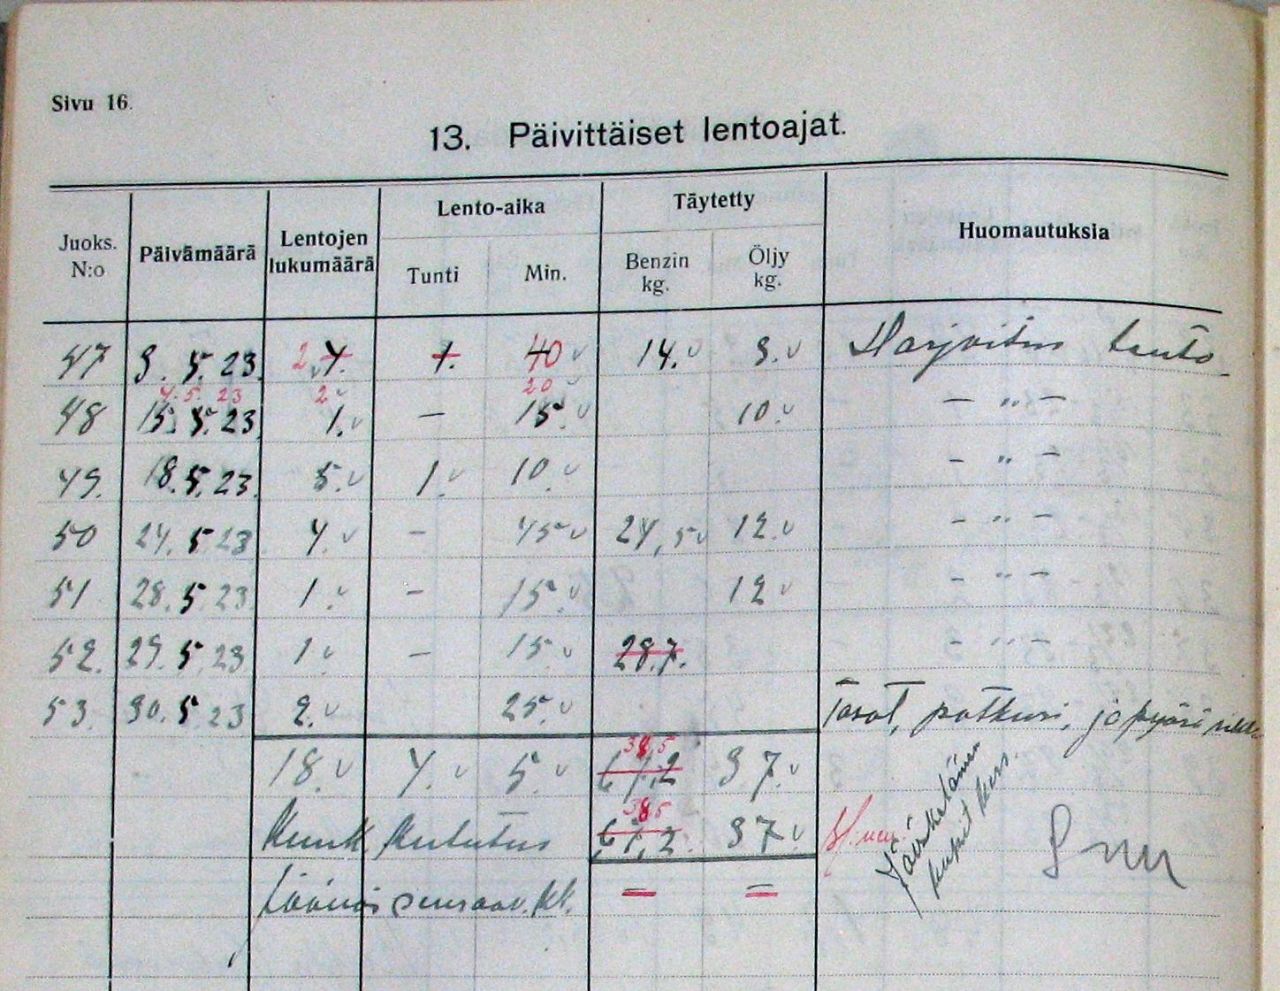 Sivu 16.
13. Päivittäiset lentoajat.
Juoks. N:o Päivämäärä Lentojen lukumäärä Lento-aika Täytetty Huomautuksia
Tunti Min. Benzin kg. Öljy kg.
47 3. 5. 23. 2. 4. 1. 40 14. 3. Harjoitus lento.
4. 5. 23 2 20
48 15. 5. 23 1. — 15. 10. — " —
49. 18. 5. 23. 5. 1. 10. — " —
50 24. 5. 23 4. — 45 24,5 12. — " —
51 28. 5. 23 1. — 15. 12 — " —
52. 29. 5. 23 1. — 15. 28.7. — " —
53. 30. 5. 23 2. 25. Tasot, potkuri, ja pyörä
38,5
18. 4. 5. 67,2 37.
38,5
Kuuk. kulutus 67,2. 37
Jäännös seuraav. kk. = =